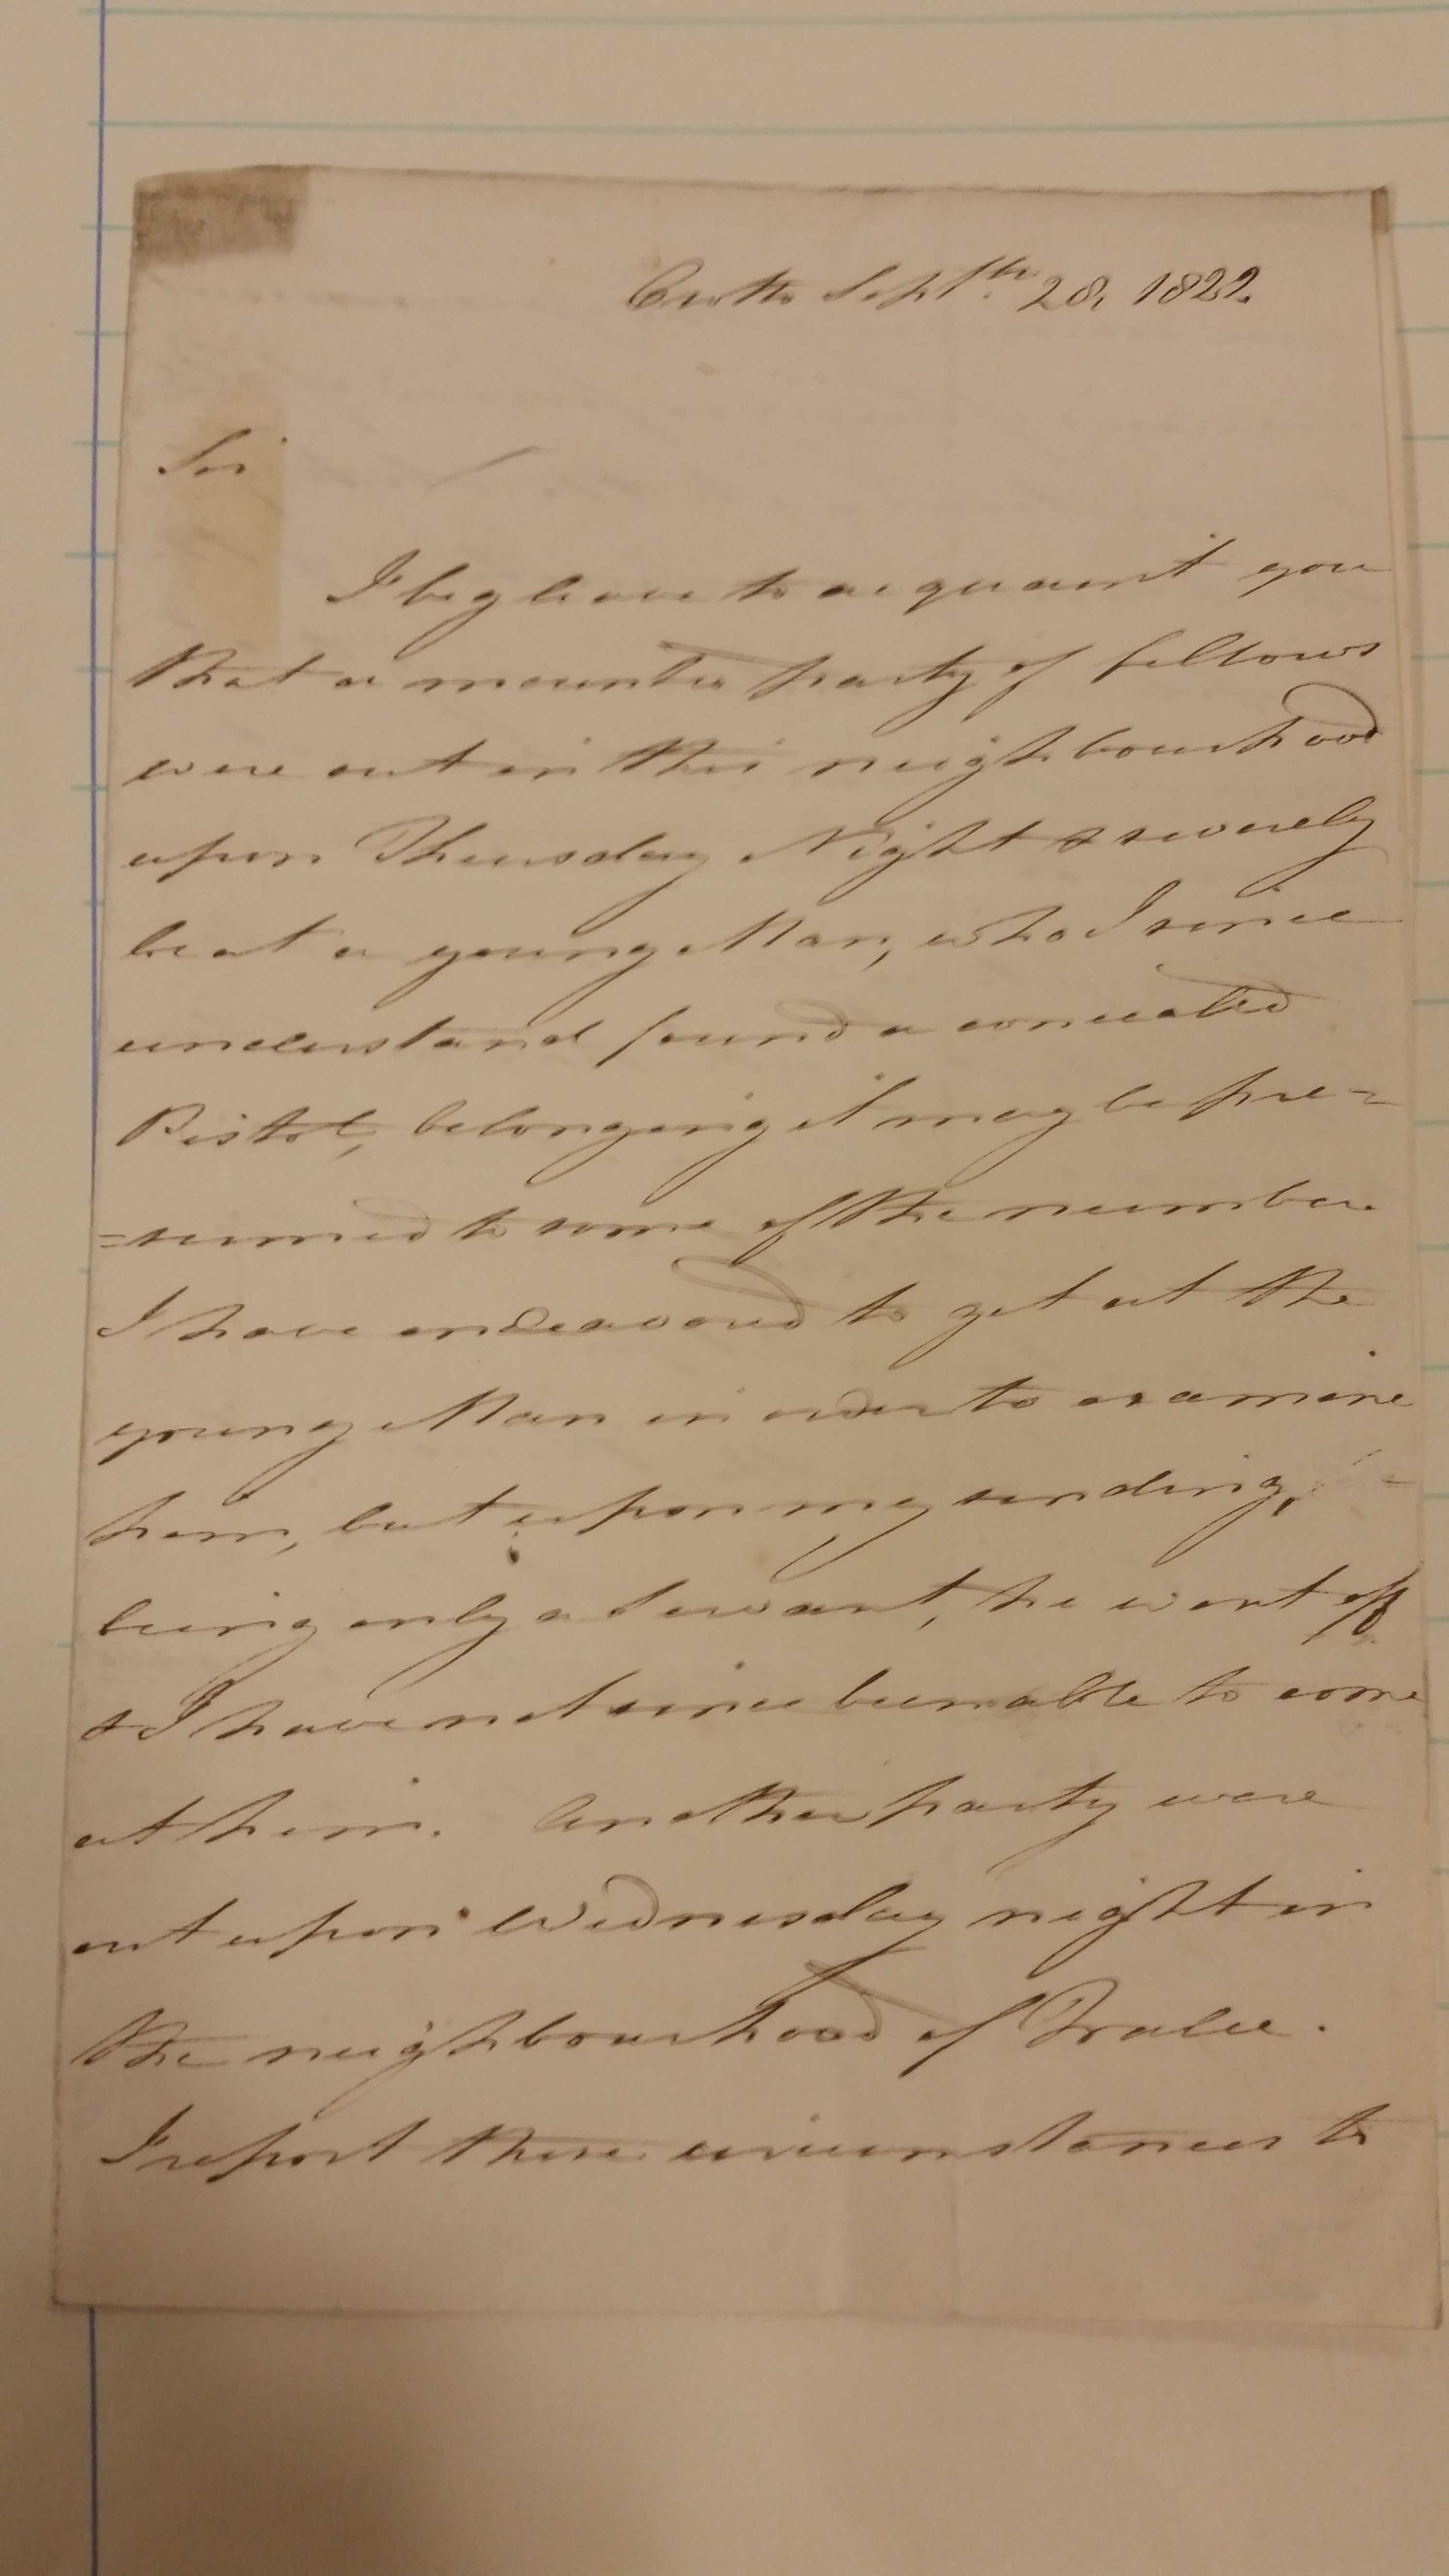 Crotto Septbr. 28, 1822.
Sir
I beg leave to acquaint you
that a mounted party of fellows
were out in this neighbourhood
upon Thursday Night & severely
beat a young Man, who I since
understand found a concealed
Pistol, belonging it may be pre=
=sumed to some of the number.
I have endeavored to get at the
young Man in order to examine
him, but upon my sending,
being only a Servant, he went off
& I have not since been able to come
at him. Another party were
out upon Wednesday night in
the neighbourhood of Tralee.
I report these circumstances to